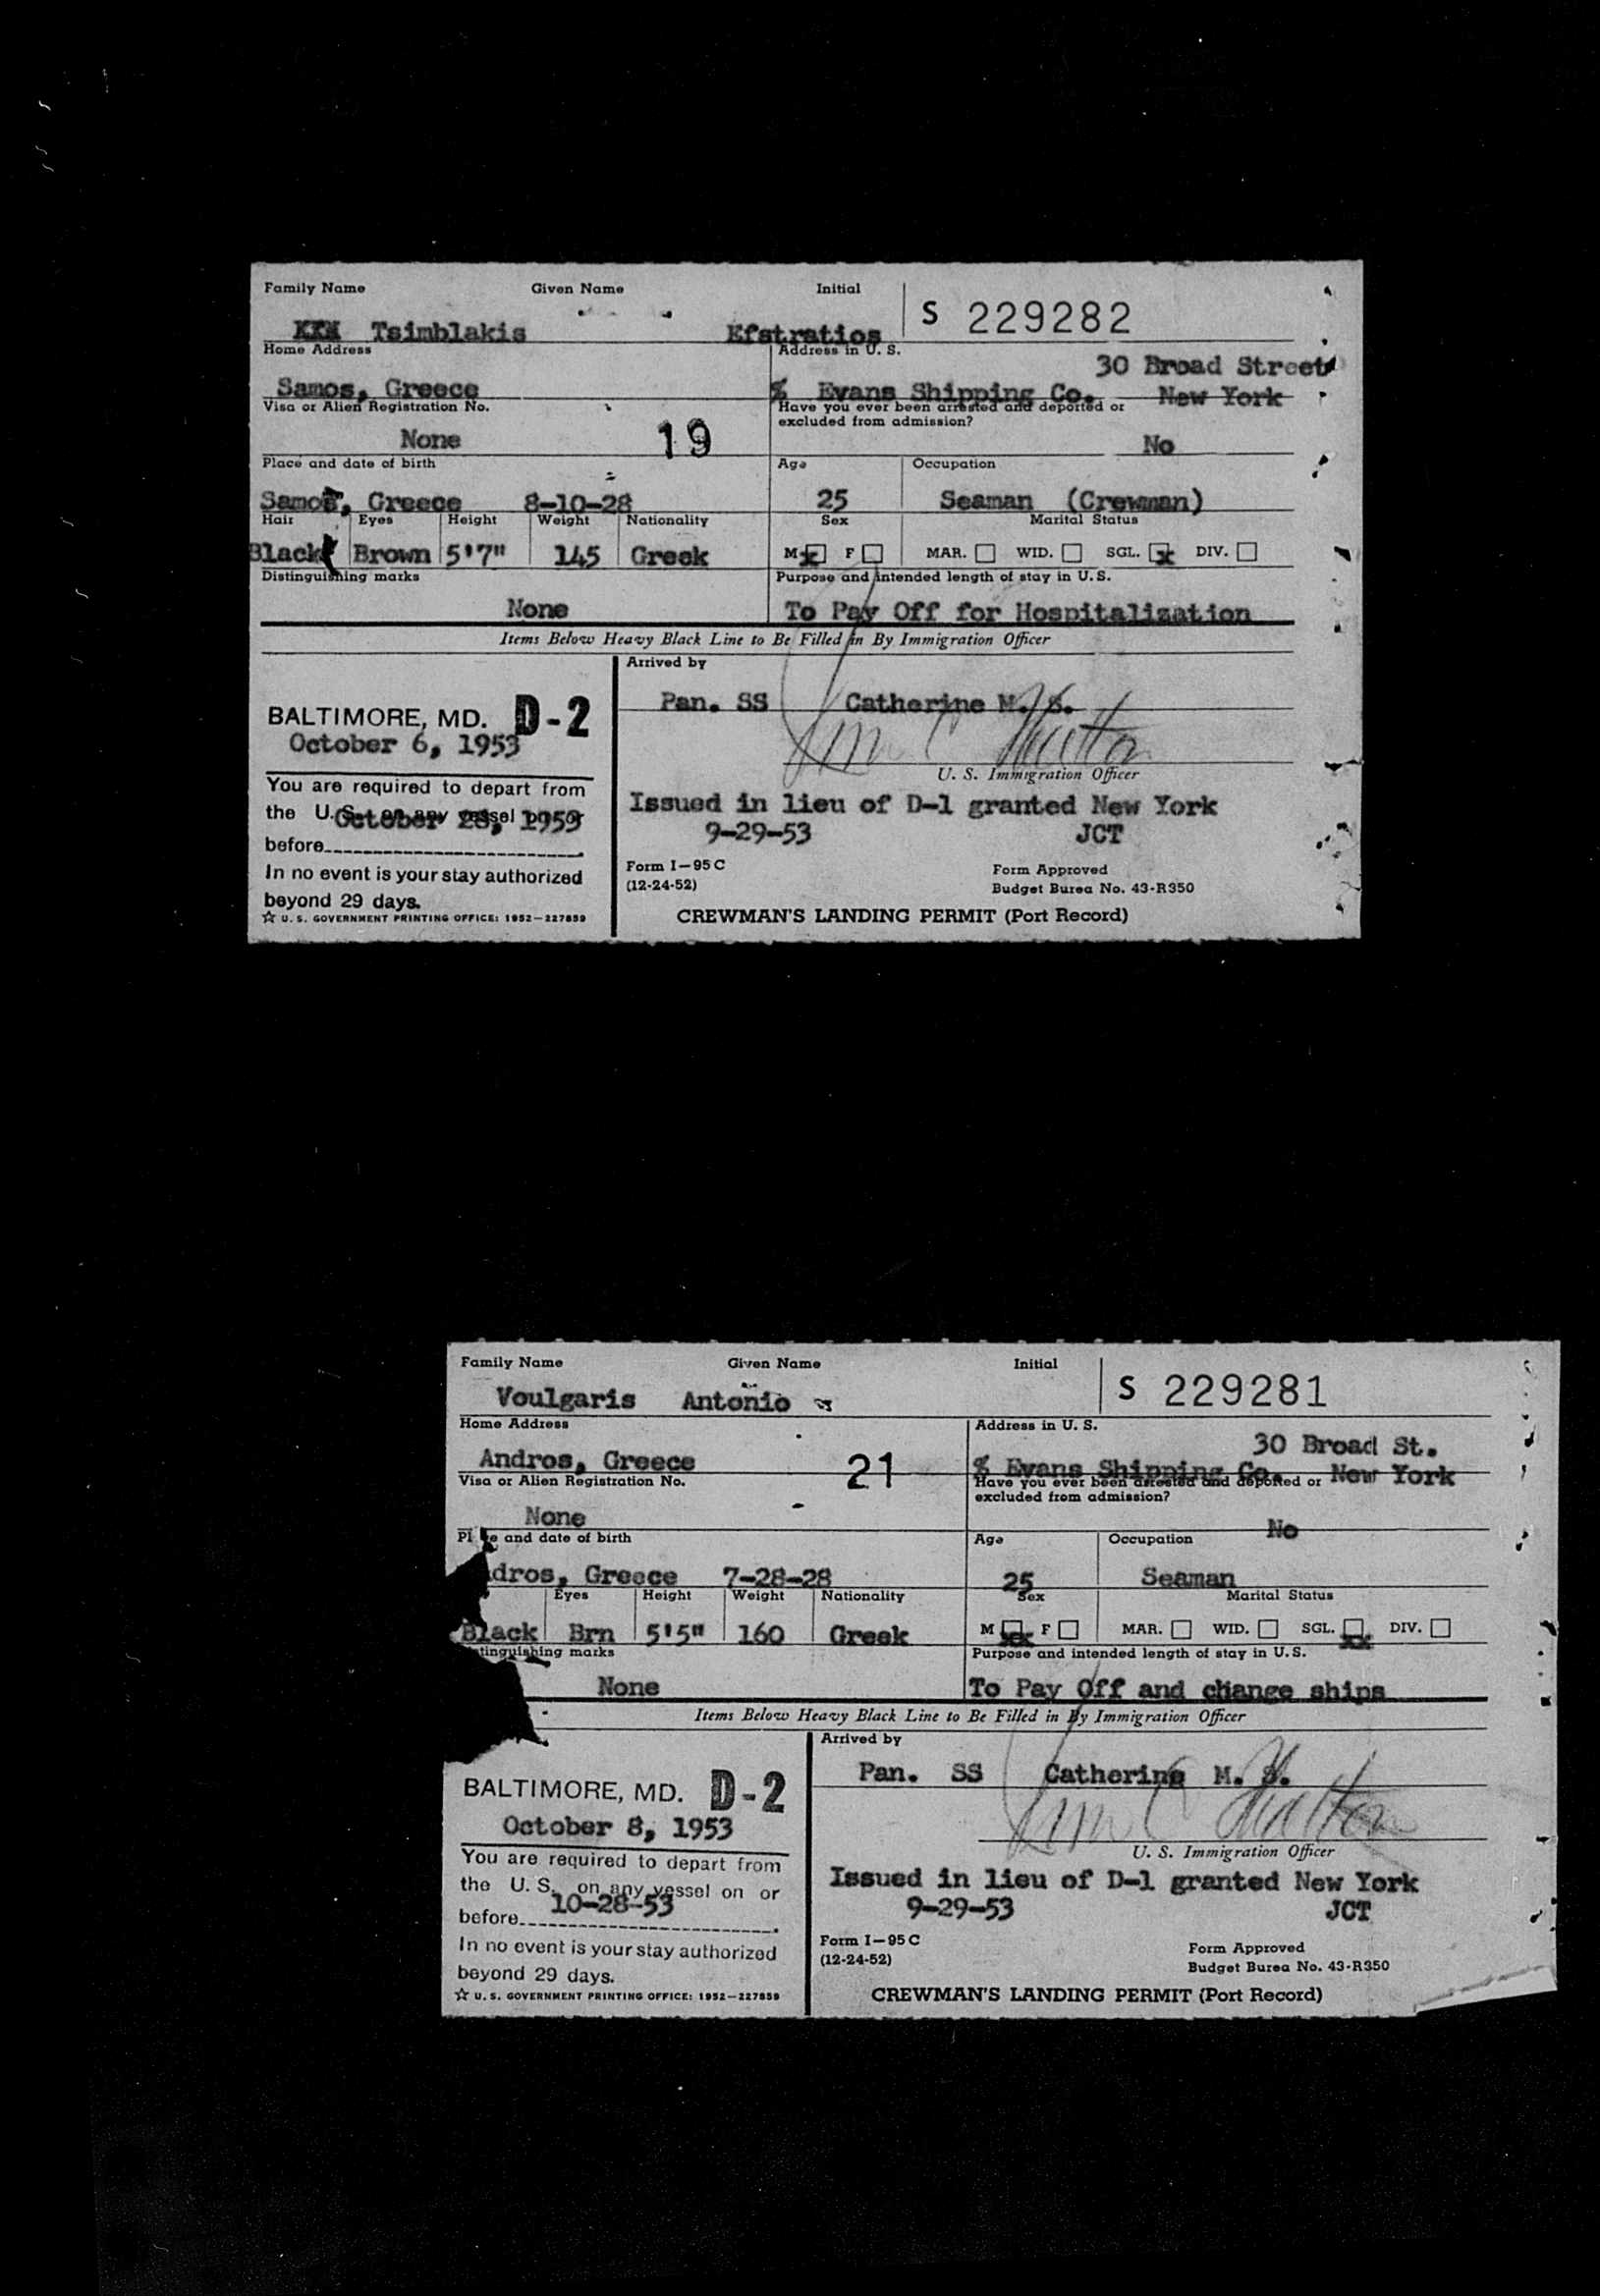 Family Name Given Name Initial
S 229282
XXX Tsimblakis Efstratios
Home Address Address in U. S.
30 Broad Street
Samos, Greece % Evans Shipping Co. New York
Visa or Alien Registration No. Have you ever been arrested and deported or
excluded from admission?
None 19 No
Place and date of birth Age Occupation
Samos, Greece 8-10-28 25 Seaman (Crewman)
Hair Eyes Height Weight Nationality Sex Marital Status
Black Brown 5'7" 145 Greek M x F MAR. WID. SGL. x DIV.
Distinguishing marks Purpose and intended length of stay in U.S.
None To Pay Off for Hospitalization
Items Below Heavy Black Line to Be Filled in By Immigration Officer
Arrived by
Pan. SS Catherine M. S.
BALTIMORE, MD. D-2
October 6, 1953
U. S. Immigration Officer
You are required to depart from
the U.S. on any vessel on or
October 28, 1953
before
Issued in lieu of D-1 granted New York
9-29-53 JCT
In no event is your stay authorized
beyond 29 days.
☆ U. S. GOVERNMENT PRINTING OFFICE: 1952—227859
Form I—95 C
(12-24-52)
Form Approved
Budget Burea No. 43-R350
CREWMAN'S LANDING PERMIT (Port Record)
Family Name Given Name Initial
S 229281
Voulgaris Antonio
Home Address Address in U. S.
30 Broad St.
Andros, Greece 21 % Evans Shipping Co. New York
Visa or Alien Registration No. Have you ever been arrested and deported or
excluded from admission?
None No
and date of birth Age Occupation
dros, Greece 7-28-28 25 Seaman
Eyes Height Weight Nationality Sex Marital Status
Black Brn 5'5" 160 Greek M xx F MAR. WID. SGL. xx DIV.
tinguishing marks Purpose and intended length of stay in U.S.
None To Pay Off and change ships
Items Below Heavy Black Line to Be Filled in By Immigration Officer
Arrived by
Pan. SS Catherine M. S.
BALTIMORE, MD. D-2
October 8, 1953
U. S. Immigration Officer
You are required to depart from
the U. S. on any vessel on or
10-28-53
before
Issued in lieu of D-1 granted New York
9-29-53 JCT
In no event is your stay authorized
beyond 29 days.
☆ U. S. GOVERNMENT PRINTING OFFICE: 1952—227859
Form I—95 C
(12-24-52)
Form Approved
Budget Burea No. 43-R350
CREWMAN'S LANDING PERMIT (Port Record)